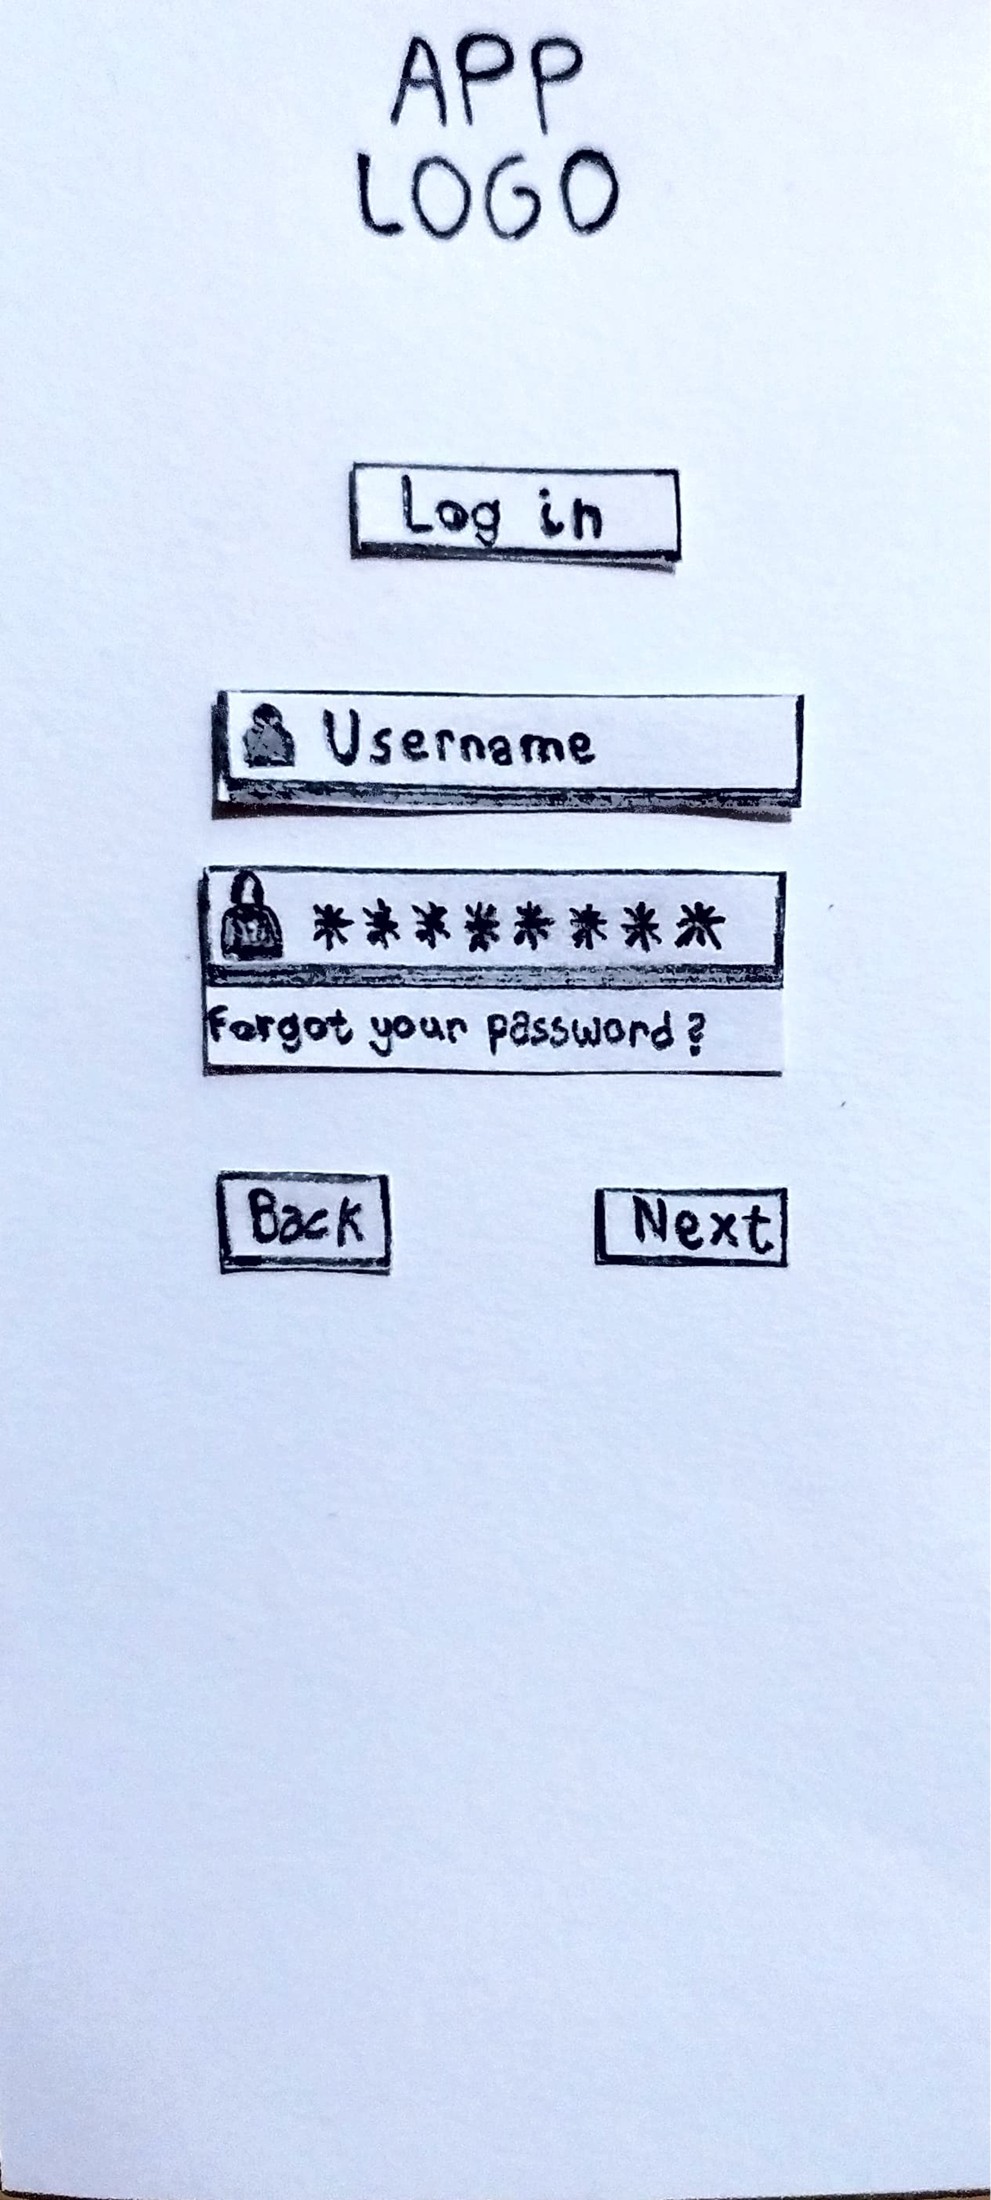 APP
LOGO
Log in
Username
********
Forgot your password?
Back
Next